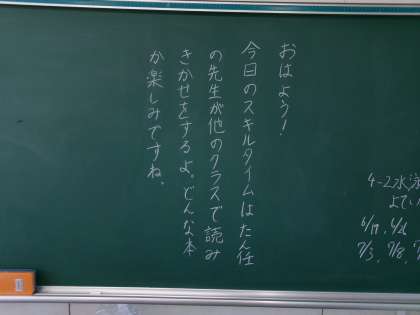 おはよう!
今日のスキルタイムはたん任
の先生が他のクラスで読み
きかせをするよ。どんな本
か楽しみですね。
4-2水泳
6/17、6/26
7/3、7/8、